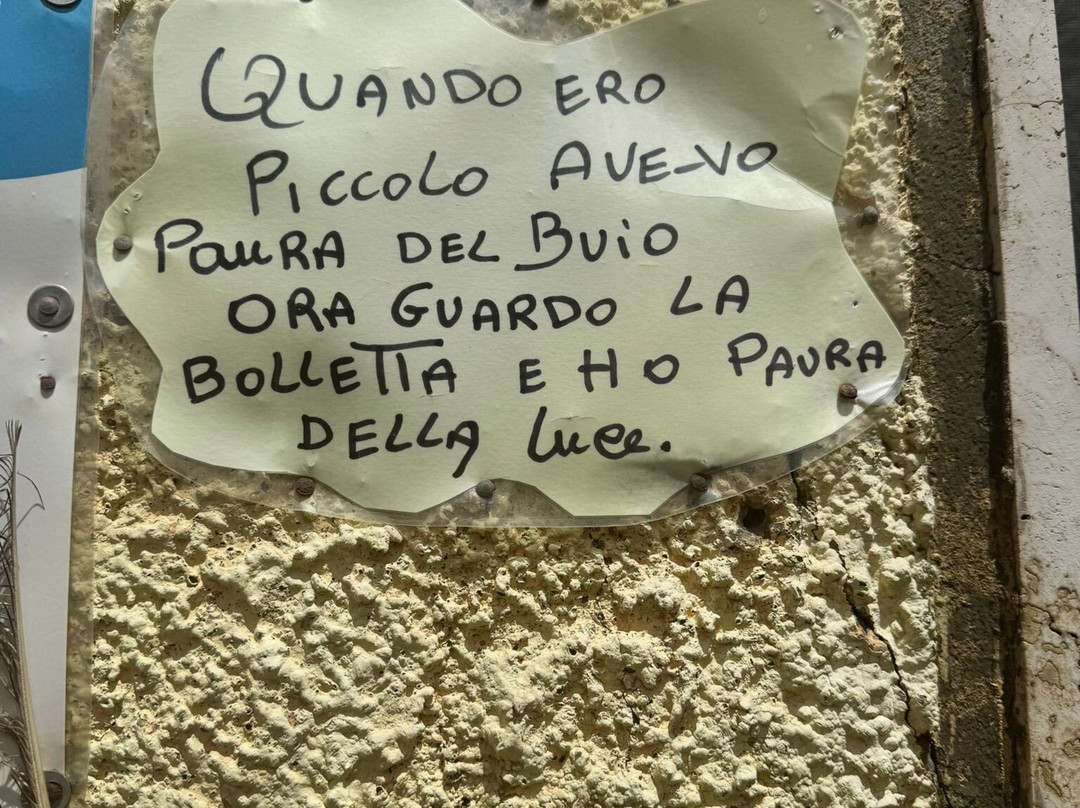 QUANDO ERO
PICCOLO AVEVO
PAURA DEL BUIO
ORA GUARDO LA
BOLLETTA E HO PAURA
DELLA luce.